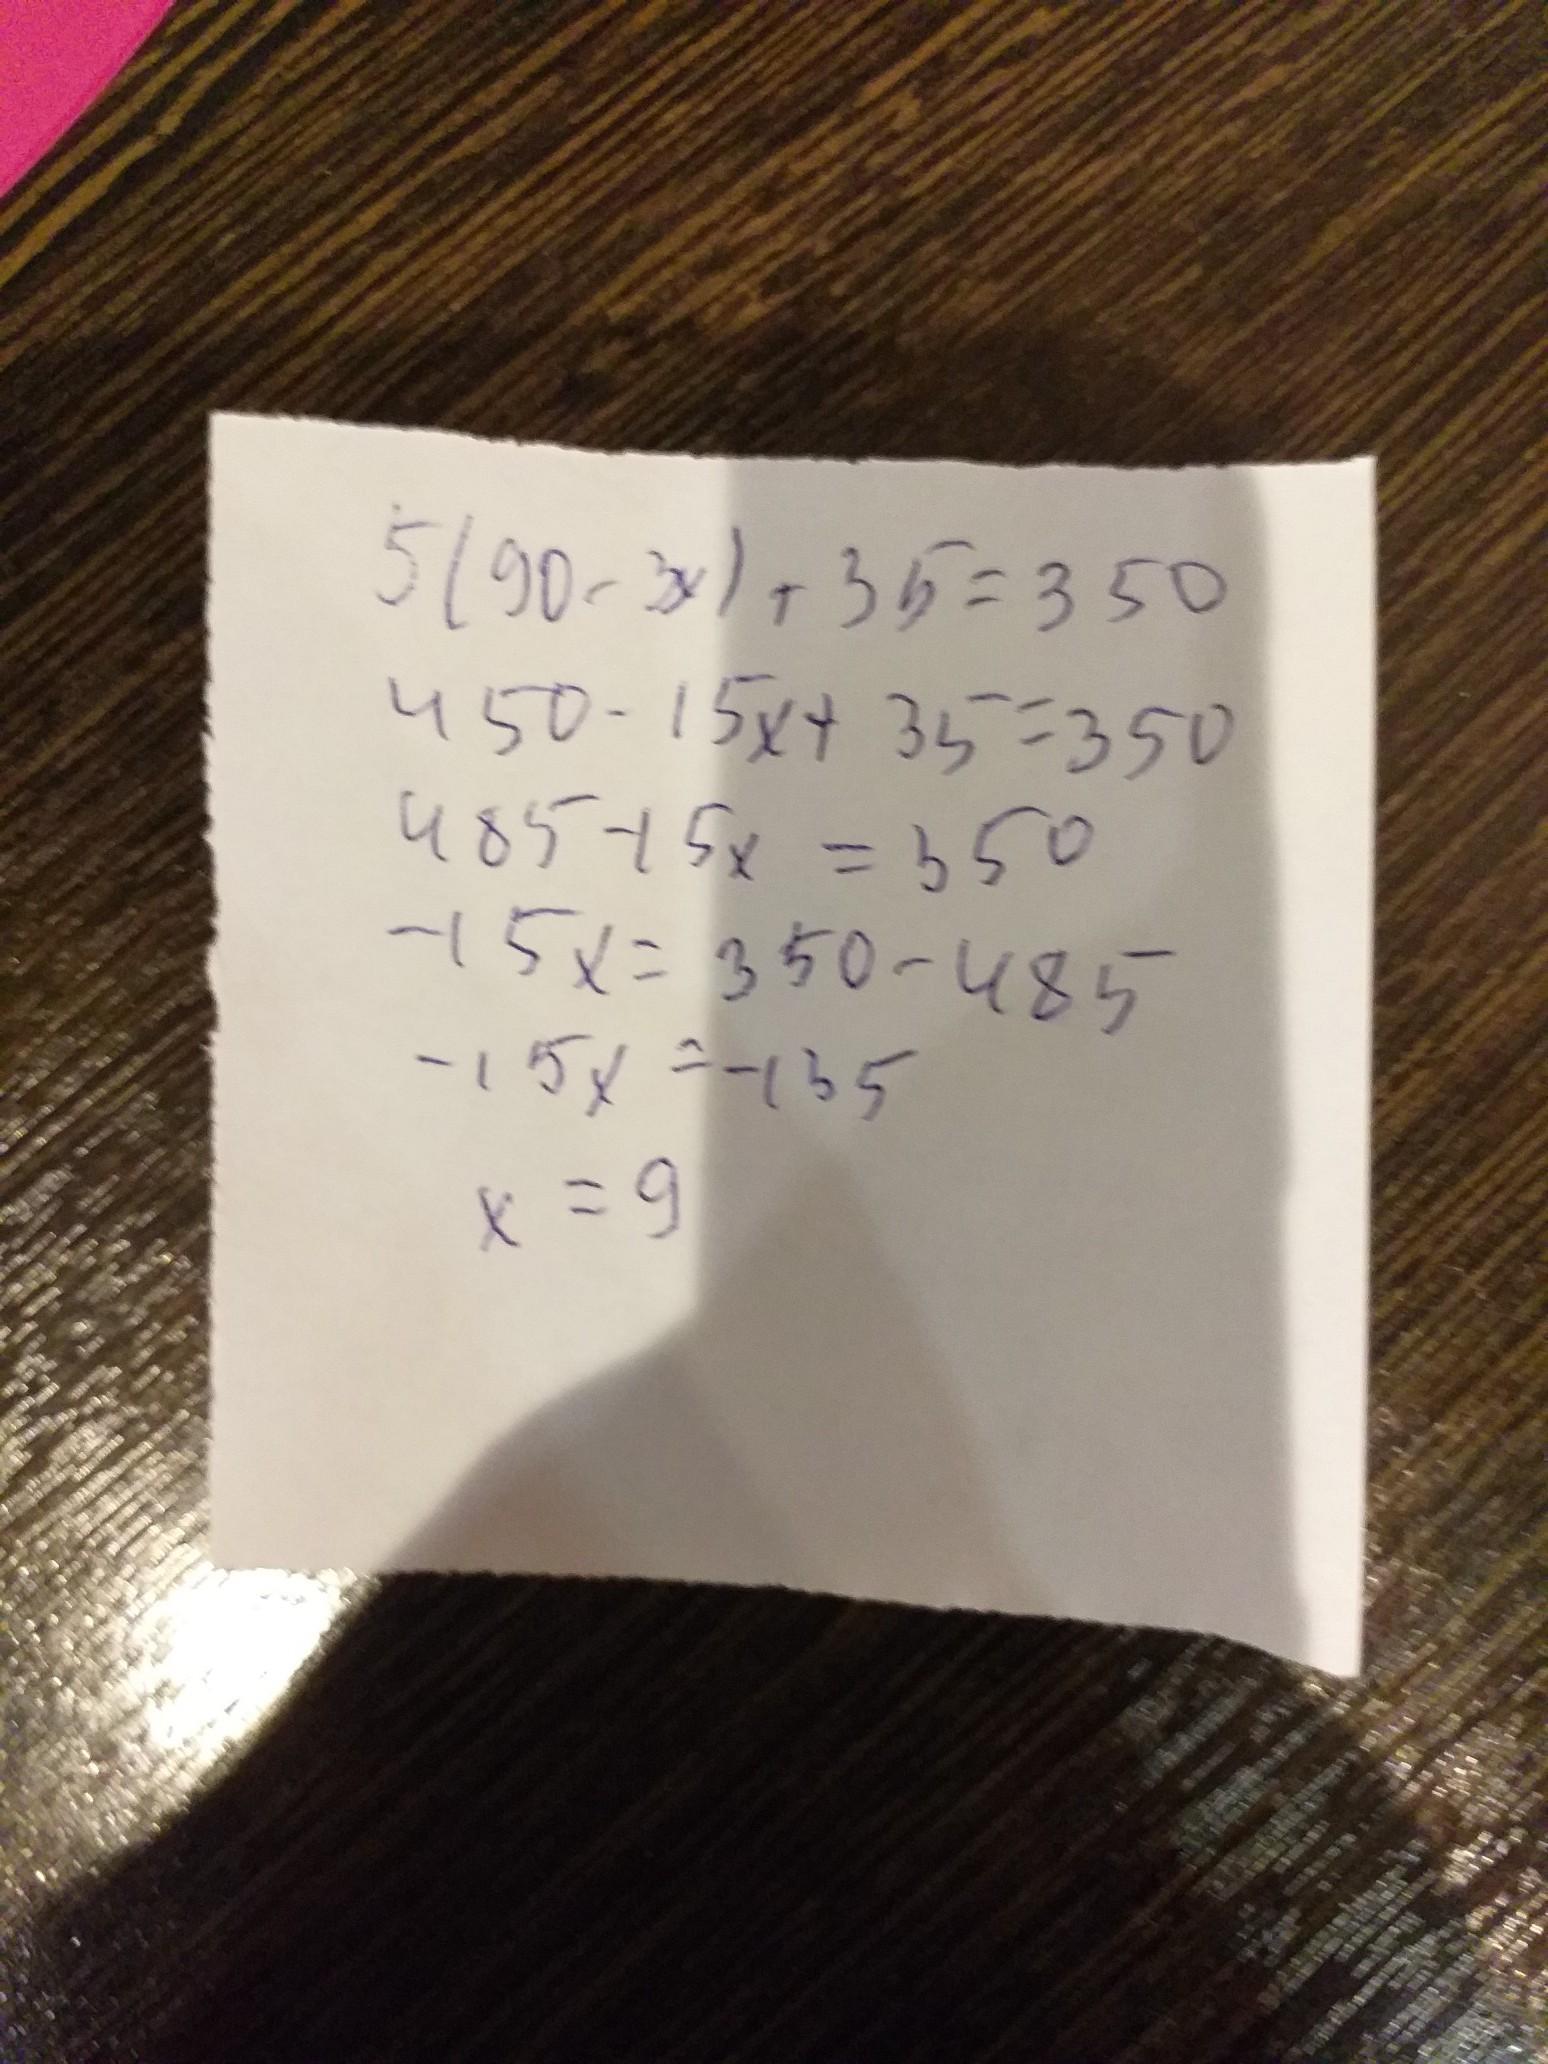 5(90-3x)+35=350
450-15x+35=350
485-15x=350
-15x=350-485
-15x=-135
x=9